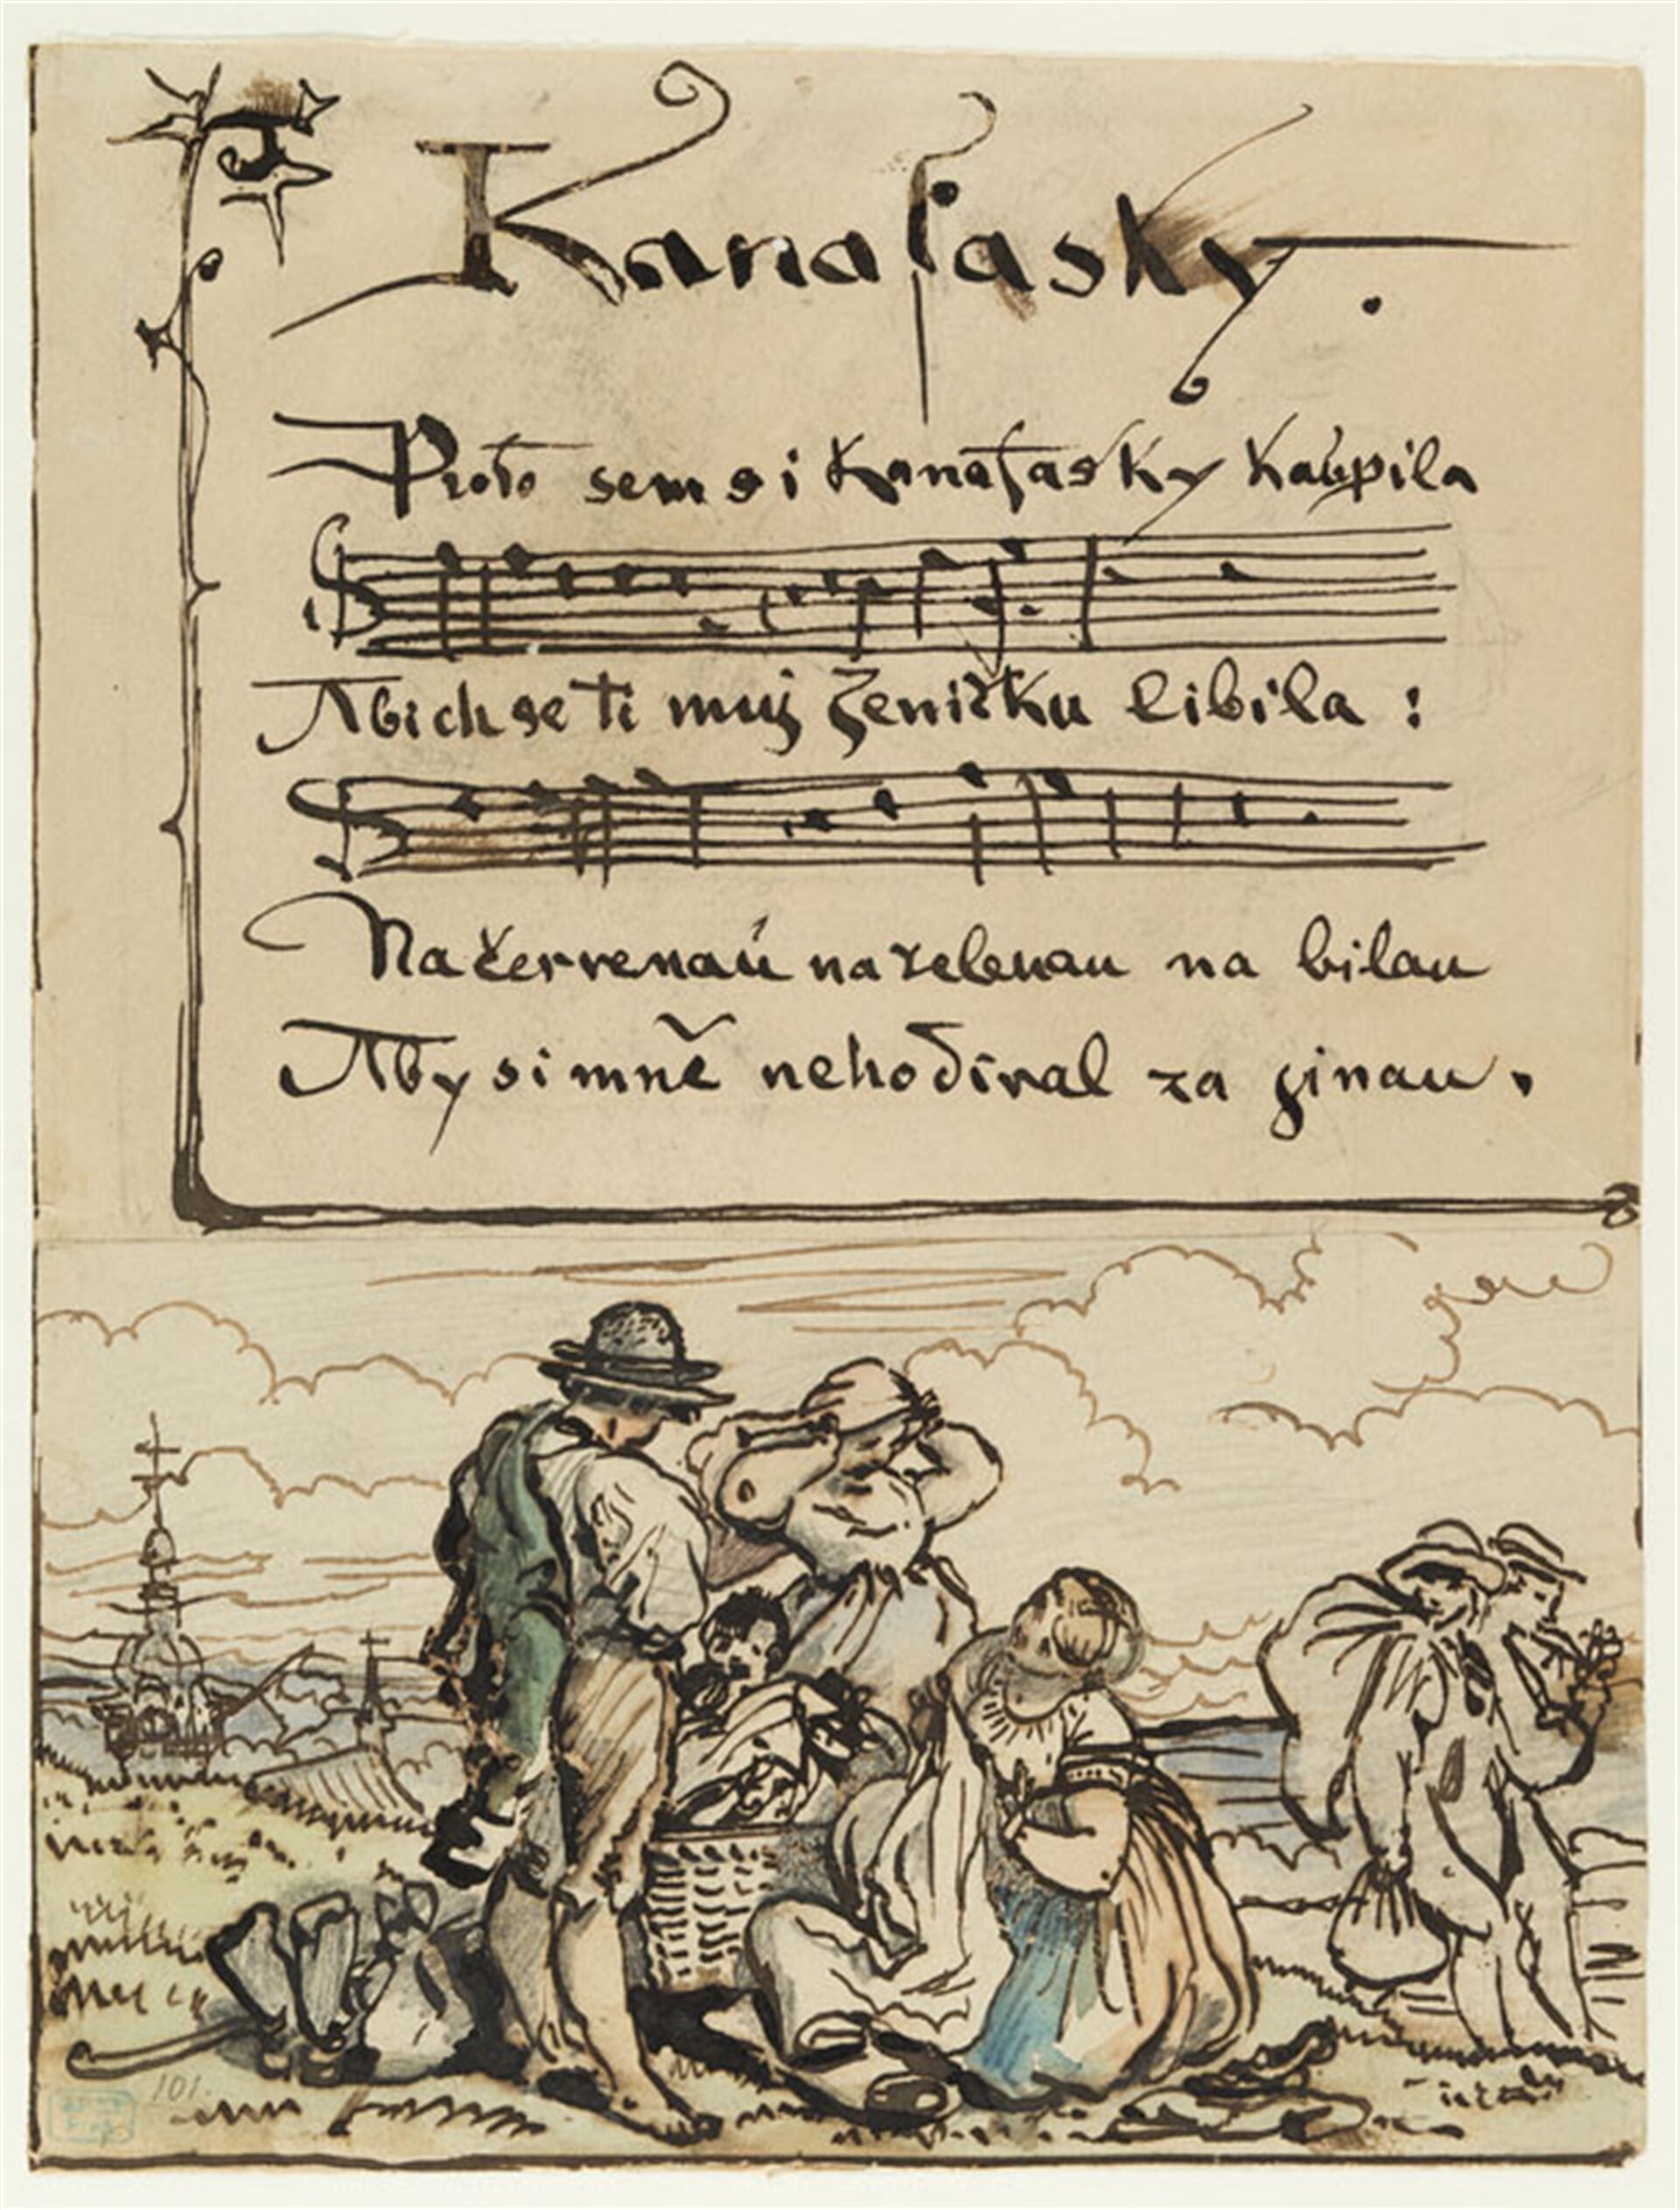 Kanafasky.
Proto sem si Kanafasky Kaupila
Abich se ti muj Ženičku libila :
Na červenaú na zelenau na bilau
Aby si mně nehodíval za ginau.
101.